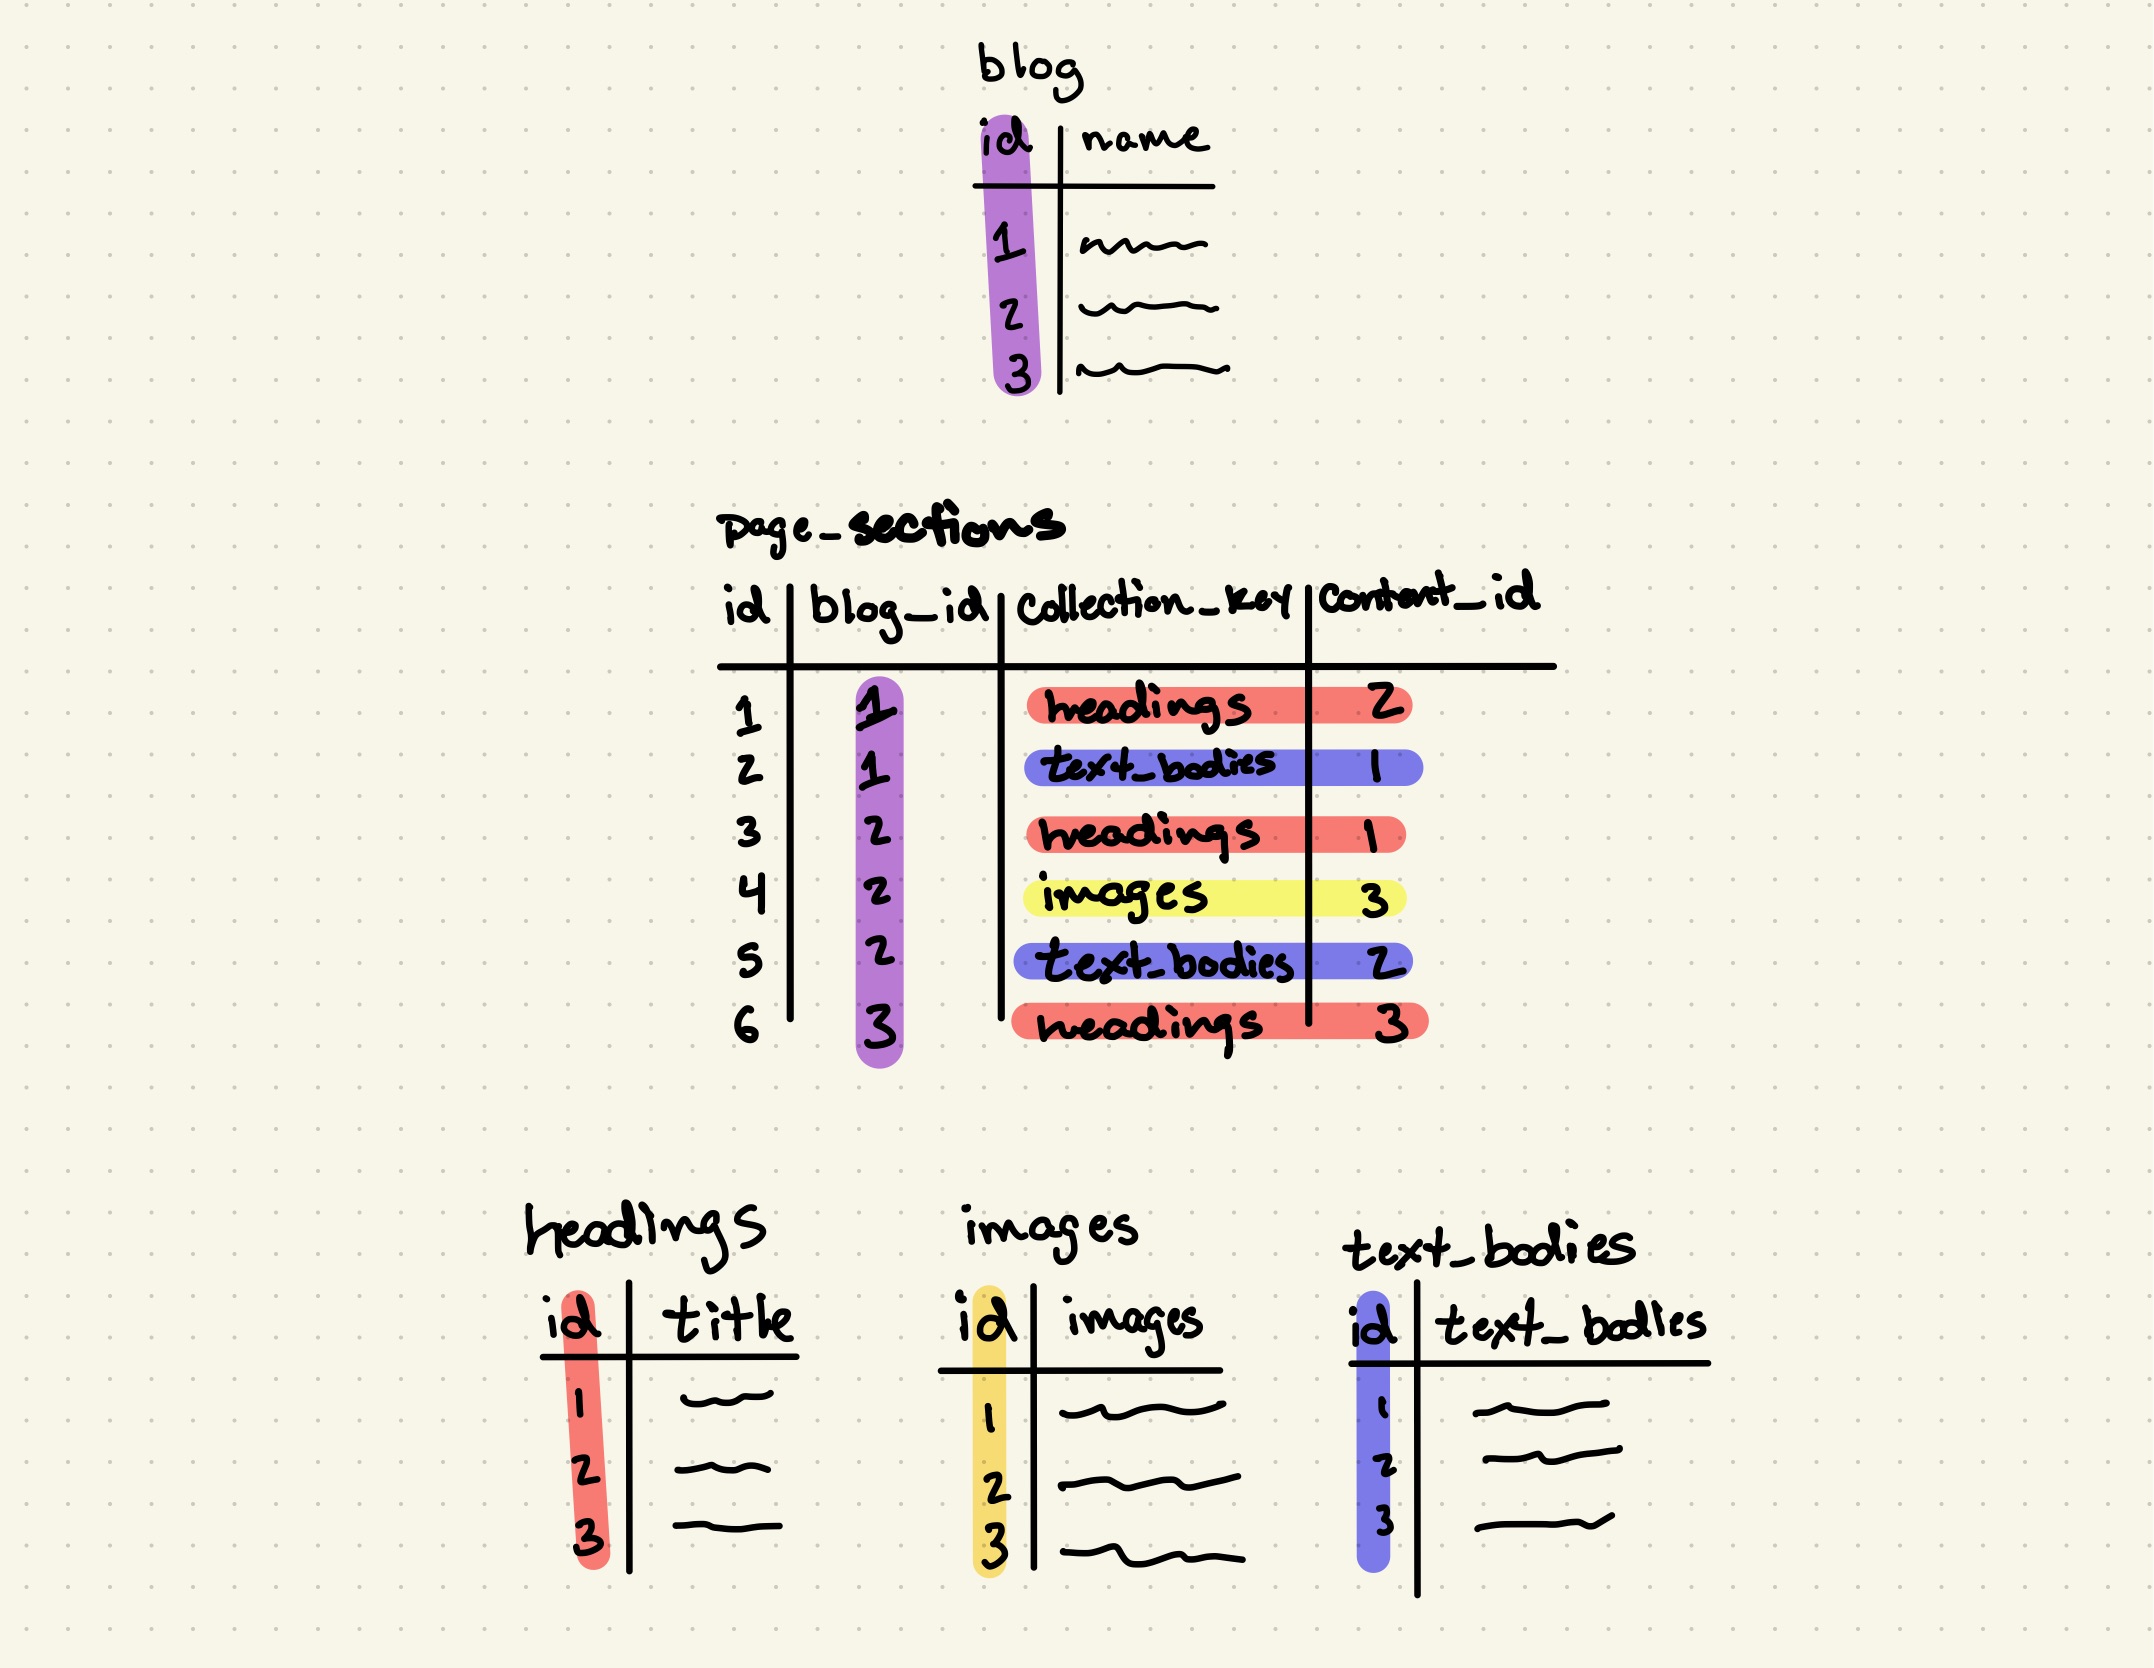 blog
id name
1
2
3
page_sections
id blog_id collection_key content_id
1 1 headings 2
2 1 text_bodies 1
3 2 headings 1
4 2 images 3
5 2 text_bodies 2
6 3 headings 3
headings
id title
1
2
3
images
id images
1
2
3
text_bodies
id text_bodies
1
2
3